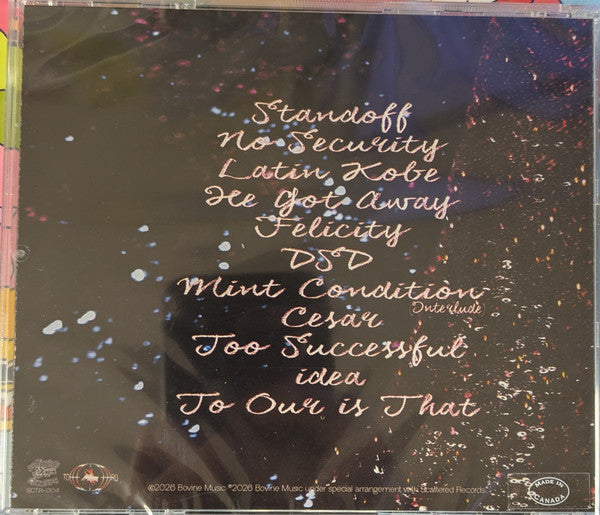 Standoff
No Security
Latin Kobe
He Got Away
Felicity
DSD
Mint Condition
Interlude
Cesar
Too Successful
idea
To Our is That
SCTR-004
©2026 Bovine Music ℗2026 Bovine Music under special arrangement with Scattered Records
MADE IN
CANADA